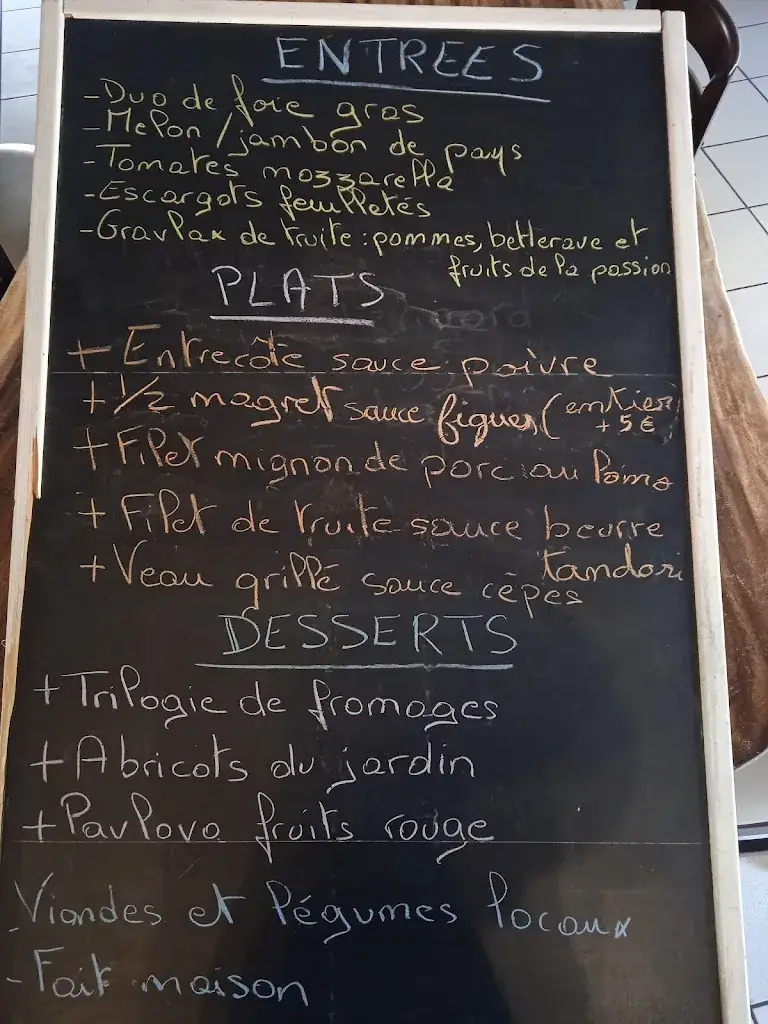 ENTREES
- Duo de foie gras
- Melon / jambon de pays
- Tomates mozzarella
- Escargots feuilletés
- Gravlax de truite : pommes, betterave et
fruits de la passion
PLATS
+ Entrecôte sauce poivre
+ 1/2 magret sauce figues (entier
+ 5€)
+ Filet mignon de porc au Pomo
+ Filet de truite sauce beurre
tandori
+ Veau grillé sauce cèpes
DESSERTS
+ Trilogie de fromages
+ Abricots du jardin
+ Pavlova fruits rouge
- Viandes et légumes locaux
- Fait maison